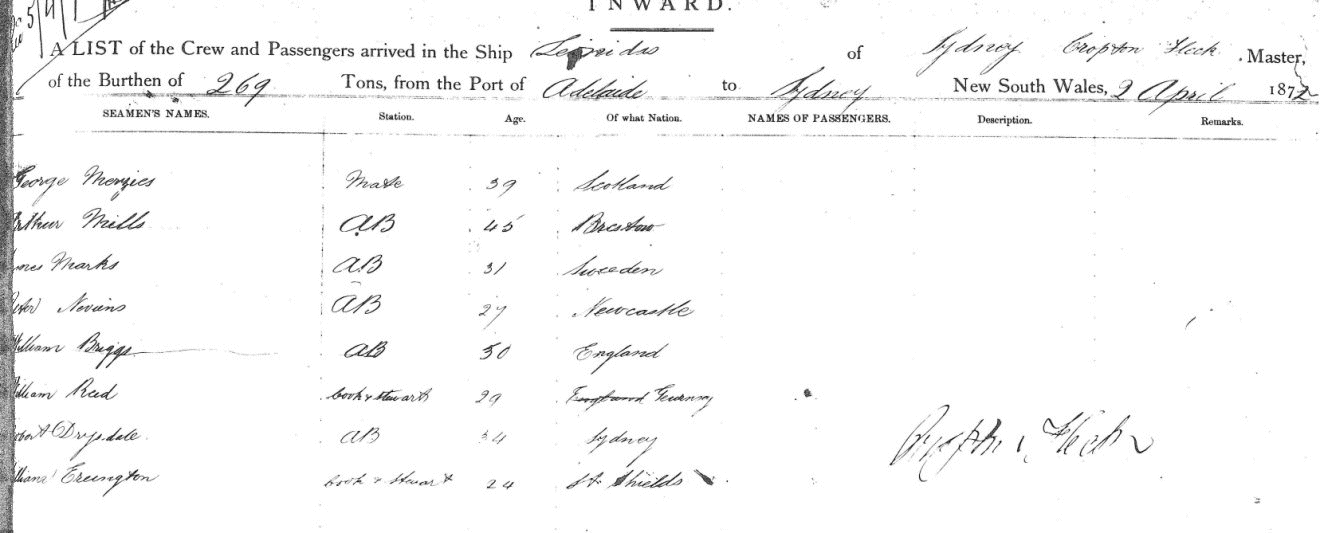 INWARD.
A LIST of the Crew and Passengers arrived in the Ship Leonidas of Sydney Cropton Fleck . Master,
of the Burthen of 269 Tons, from the Port of Adelaide to Sydney New South Wales, 2 April 1872
SEAMEN'S NAMES. Station. Age. Of what Nation. NAMES OF PASSENGERS. Description. Remarks.
George Menzies Mate 39 Scotland
Arthur Mills AB 45 Brestow
Marks AB 31 Sweden
Nevins AB 27 Newcastle
William Briggs AB 50 England
William Reed Cook & Stewart 29 England Guernsey
Robert Drysdale AB 34 Sydney
Errington Cook & Stewart 24 St Shields
Fleck